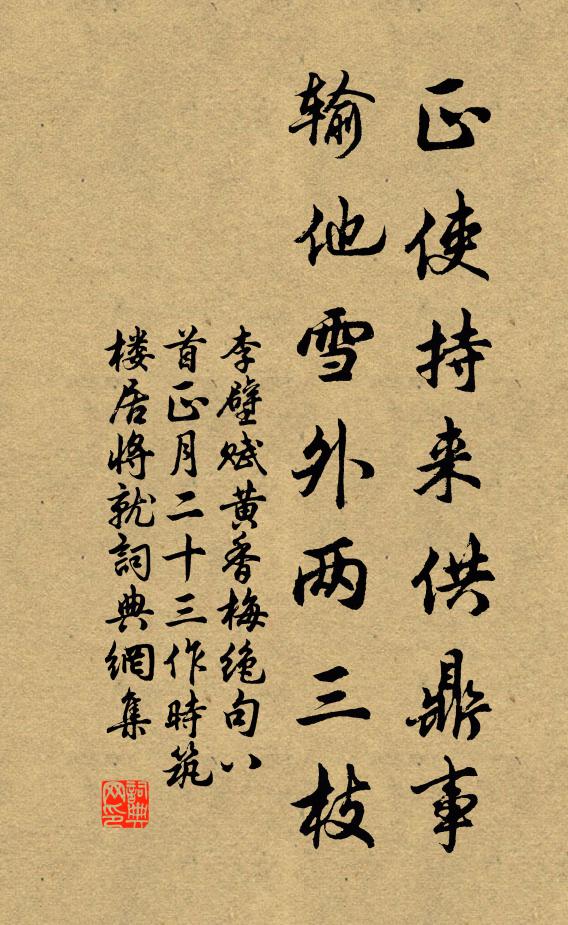 正使持来供鼎事
输他雪外两三枝
李壁赋黄香梅绝句八
首正月二十三作时筑
楼居将就詞典網集
詞典
网印